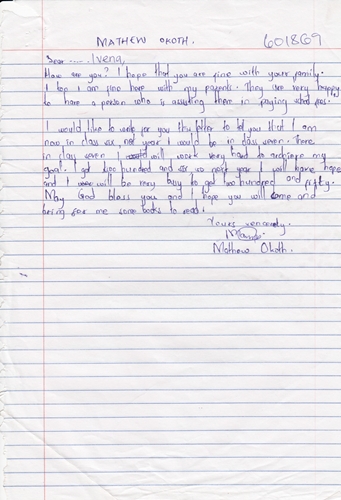 MATHEW OKOTH. 601869
Dear ..... Ivena,
How are you? I hope that you are fine with your family.
I too I am fine here with my parents. They are very happy
to have a person who is assisting them in paying school fees.
I would like to write for you this letter to let you that I am
now in class six, next year I would be in class seven. There
in class seven I will work very hard to achieve my
goal. I got two hundred and six so next year I will have hope
and I will be very busy to get two hundred and fifty.
May God bless you and I hope you will come and
bring for me some books to read.
Yours sincerely.
Mathew Okoth.